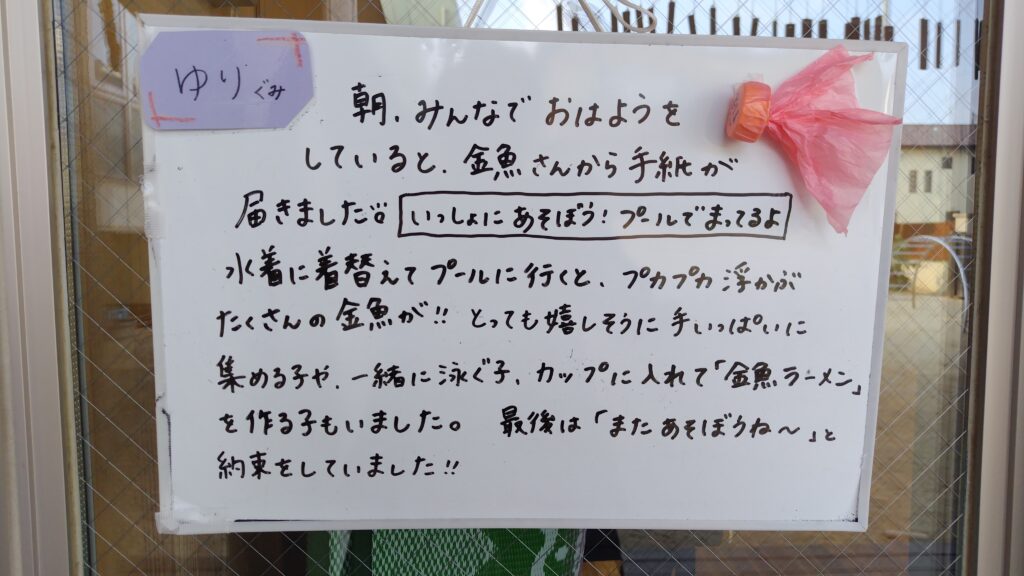 ゆりぐみ
朝、みんなで おはようを
していると、金魚さんから 手紙が
届きました。 いっしょに あそぼう! プールでまってるよ
水着に着替えて プールに 行くと、 プカプカ 浮かぶ
たくさんの 金魚が!! とっても嬉しそうに 手いっぱいに
集める子や、一緒に泳ぐ子、カップに入れて「金魚ラーメン」
を作る子もいました。 最後は「また あそぼうね〜」と
約束をしていました!!